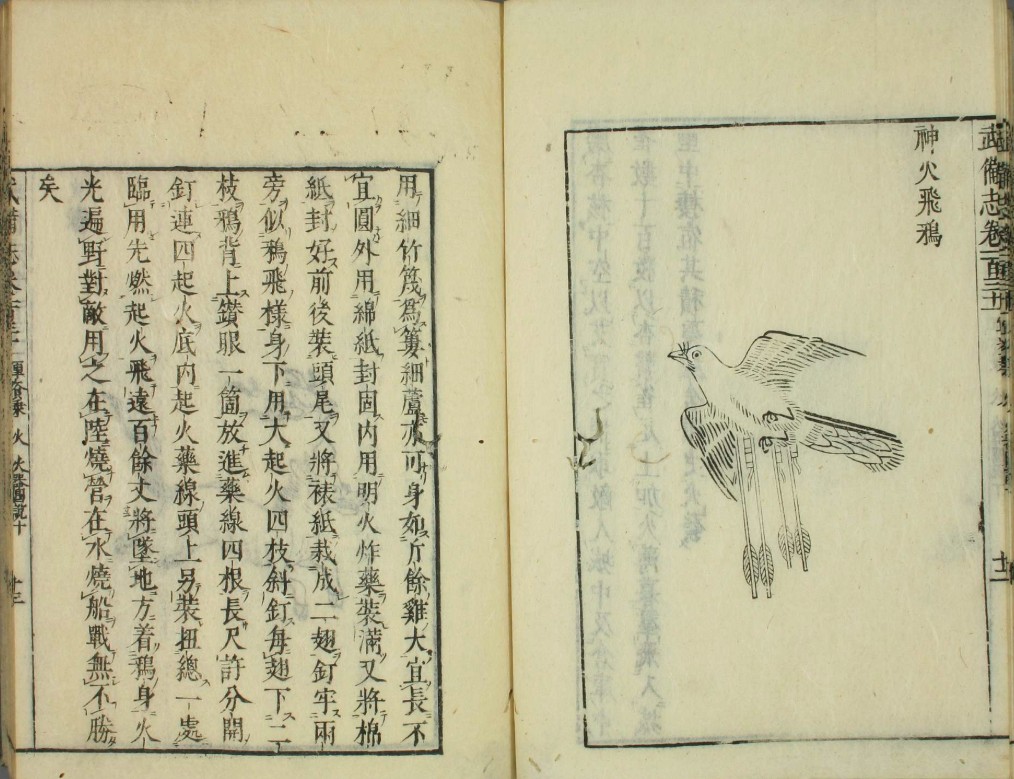 武備志卷一百三十一
神火飛鴉
用細竹篾爲簍細蘆亦可身如斤餘雞大宜長不
宜圓外用綿紙封固内用明火炸藥裝滿又將棉
紙封好前後裝頭尾又將裱紙裁成二翅釘牢兩
旁似鴉飛樣身下用大起火四枝斜釘每翅下二
枝鴉背上鑚眼一箇放進藥線四根長尺許分開
釘連四起火底内起火藥線頭上另裝扭總一處
臨用先燃起火飛遠百餘丈將墜地方着鴉身火
光遍野對敵用之在陸燒營在水燒船戰無不勝
矣